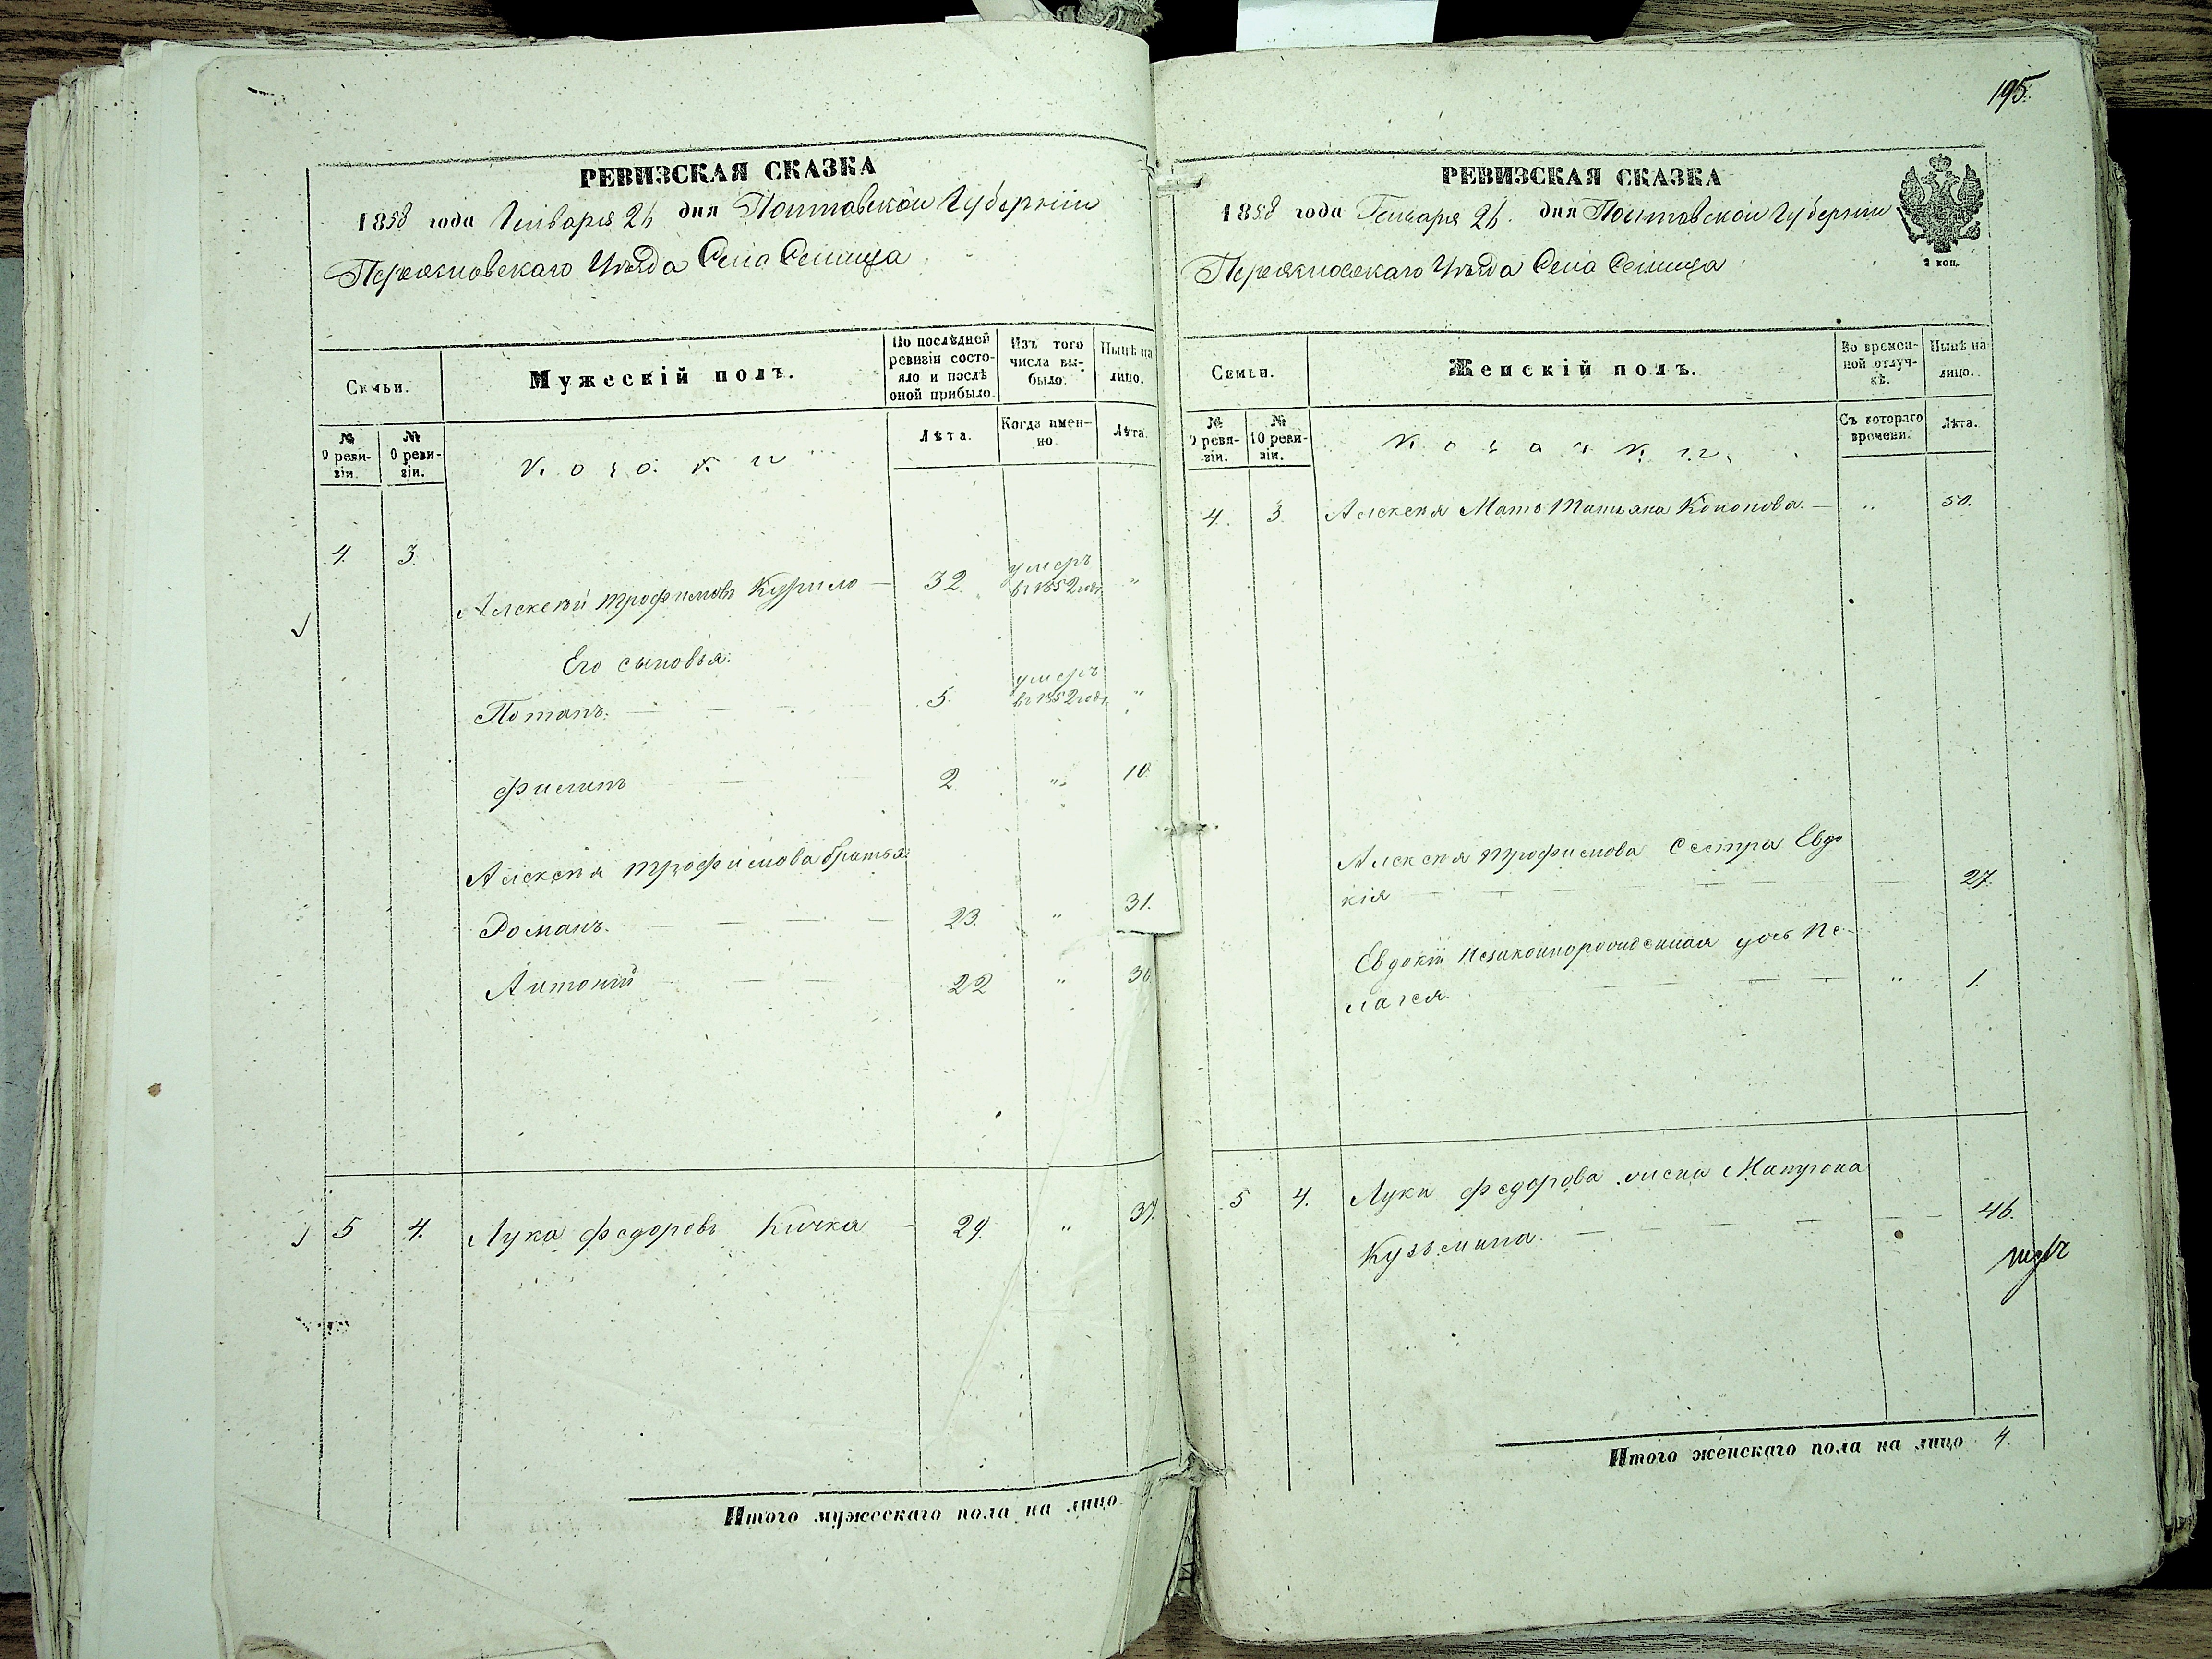 РЕВИЗСКАЯ СКАЗКА
1858 года Генваря 26 дня Полтавской Губернии
Переяславскаго Уѣзда Села
Семьи.
Мужескій полъ.
По послѣдней ревизіи состояло и послѣ оной прибыло.
Изъ того числа выбыло.
Нынѣ на лицо.
№ 9 ревизіи.
№ 0 ревизіи.
Козаки
Лѣта.
Когда именно.
Лѣта.
4. 3.
Алексѣй Трофимовъ Курило — 32. умеръ въ 1852 годѣ "
Его сыновья:
Потапъ. — 5. умеръ въ 1852 годѣ "
Филипъ — 2. " 10.
Алексѣя Трофимова братья:
Романъ. — 23. " 31.
Антоній — 22 " 30.
5 4. Лука Федоровъ Кичка — 29. " 37.
Итого мужескаго пола на лицо
195.
РЕВИЗСКАЯ СКАЗКА
1858 года Генваря 26. дня Полтавской Губернии
2 коп.
Переяславскаго Уѣзда Села
Семьи.
Женскій полъ.
Во временной отлучкѣ.
Нынѣ на лицо.
№ 9 ревизіи.
№ 10 ревизіи.
Козачки
Съ котораго времени.
Лѣта.
4. 3. Алексѣя Мать Татьяна Кононова. — " 50.
Алексѣя Трофимова Сестра Евдо
кія — 27.
Евдокіи незаконнорожденная дочь Пе-
лагея. — " 1.
5 4. Луки Федорова жена Мапрона
Кузьмина. — 46.
Итого женскаго пола на лицо 4.